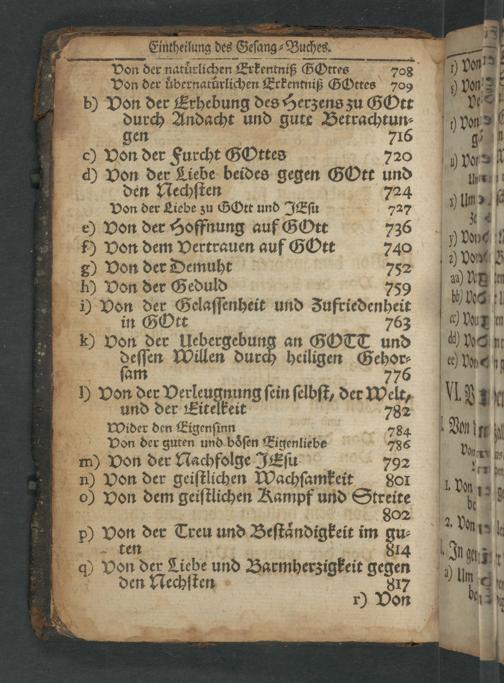 Eintheilung des Gesang-Buches.
Von der natürlichen Erkentniß GOttes 708
Von der übernatürlichen Erkentniß GOttes 709
b) Von der Erhebung des Herzens zu GOtt
durch Andacht und gute Betrachtun-
gen 716
c) Von der Furcht GOttes 720
d) Von der Liebe beides gegen GOtt und
den Nechsten 724
Von der Liebe zu GOtt und JEsu 727
e) Von der Hoffnung auf GOtt 736
f) Von dem Vertrauen auf GOtt 740
g) Von der Demuht 752
h) Von der Geduld 759
i) Von der Gelassenheit und Zufriedenheit
in GOtt 763
k) Von der Uebergebung an GOTT und
dessen Willen durch heiligen Gehor-
sam 776
l) Von der Verleugnung sein selbst, der Welt,
und der Eitelkeit 782
Wider den Eigensinn 784
Von der guten und bösen Eigenliebe 786
m) Von der Nachfolge JEsu 792
n) Von der geistlichen Wachsamkeit 801
o) Von dem geistlichen Kampf und Streite
802
p) Von der Treu und Beständigkeit im gu-
ten 814
q) Von der Liebe und Barmherzigkeit gegen
den Nechsten 817
r) Von
r) Von
s) Von
t) Von
u) Von
x) Um
y) Von
z) Von
aa)
bb)
cc) Von
dd)
ee) Von
VI.
Von
1. Von
2. Von
In
a) Um